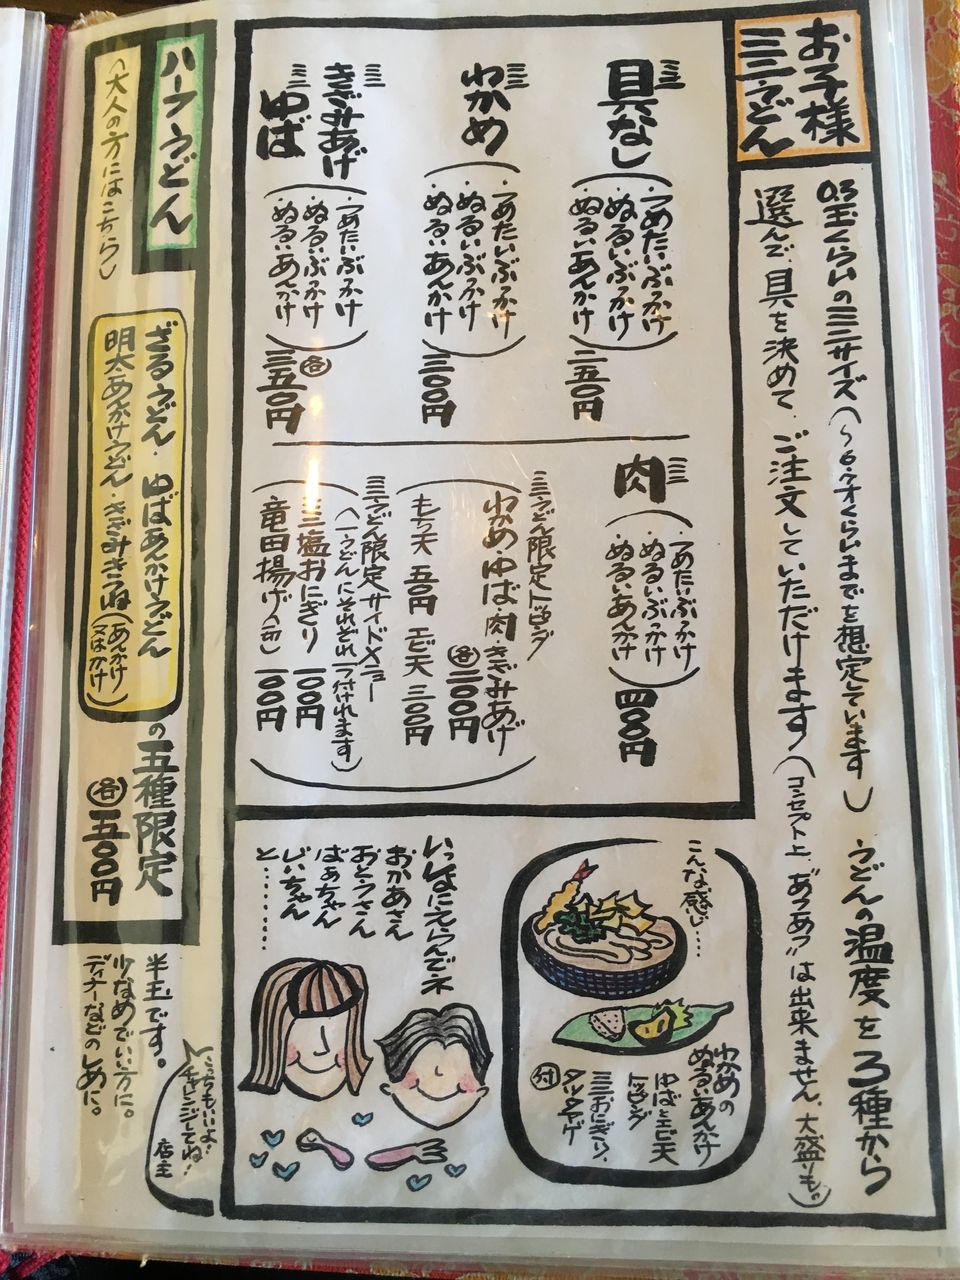 お子様
ミニうどん
0.3玉くらいのミニサイズ(〜6才くらいまでを想定しています) うどんの温度を3種から
選んで、具を決めて、ご注文していただけます(コンセプト上、"あつあつ"は出来ません。大盛りも。)
ミニ
具なし
(・つめたいぶっかけ
・ぬるいぶっかけ
・ぬるいあんかけ)
二五〇円
ミニ
わかめ
(・つめたいぶっかけ
・ぬるいぶっかけ
・ぬるいあんかけ)
三〇〇円
ミニ
きざみあげ
ミニ
ゆば
(・つめたいぶっかけ
・ぬるいぶっかけ
・ぬるいあんかけ)
各
三五〇円
ミニ
肉
(・つめたいぶっかけ
・ぬるいぶっかけ
・ぬるいあんかけ)
四〇〇円
ミニうどん限定トッピング
わかめ・ゆば・肉・きざみあげ
各二〇〇円
もち天 五〇円 エビ天 三〇〇円
ミニうどん限定サイドメニュー
(一うどんにそれぞれ一つ付けれます)
ミニ塩おにぎり 一〇〇円
竜田揚げ(一コ) 一〇〇円
こんな感じ……
わかめの
ぬるいあんかけ
ゆばとエビ天
トッピング
ミニおにぎり、
タツタアゲ
付
いっしょにえらんでネ
おかあさん
おとうさん
ばあちゃん
じいちゃん
と……
ハーフうどん
(大人の方にはこちら)
ざるうどん・ゆばあんかけうどん
明太あんかけうどん・きざみきつね(あんかけ
又はかけ)
の五種限定
各
一五〇〇円
半玉です。
少なめでいい方に。
ディナーなどの〆に。
こっちもいいよ!
チャレンジしてね!
店主